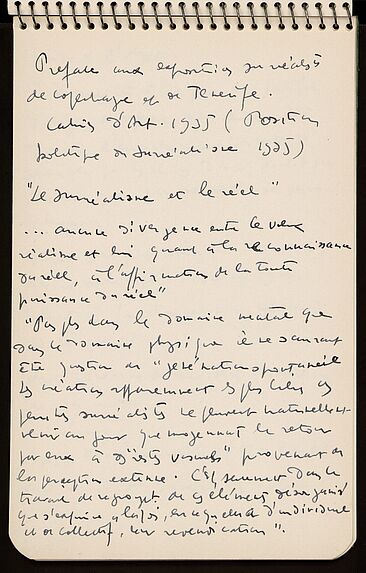 Preface aux expositions surréalistes
de Copenhague et de Tenerife.
Cahiers d'Art. 1935 (Position
politique du Surréalisme 1935)
"Le surréalisme et le réel"
... aucune divergence entre le vieux
réalisme et lui quant à la reconnaissance
du réel, à l'affirmation de la toute
puissance du réel"
"Pas plus dans le domaine mental que
dans le domaine physique il ne saurait
être question de "génération spontanée"
Les créations apparemment les plus libres des
peintres surréalistes ne peuvent naturellement
venir au jour que moyennant le retour
par eux à des "restes visuels" provenant de
la perception externe. C'est seulement dans le
travail de regroupement de ces éléments désorganisés
que s'exprime à la fois, en ce qu'elle a d'individuel
et de collectif, leur revendication".